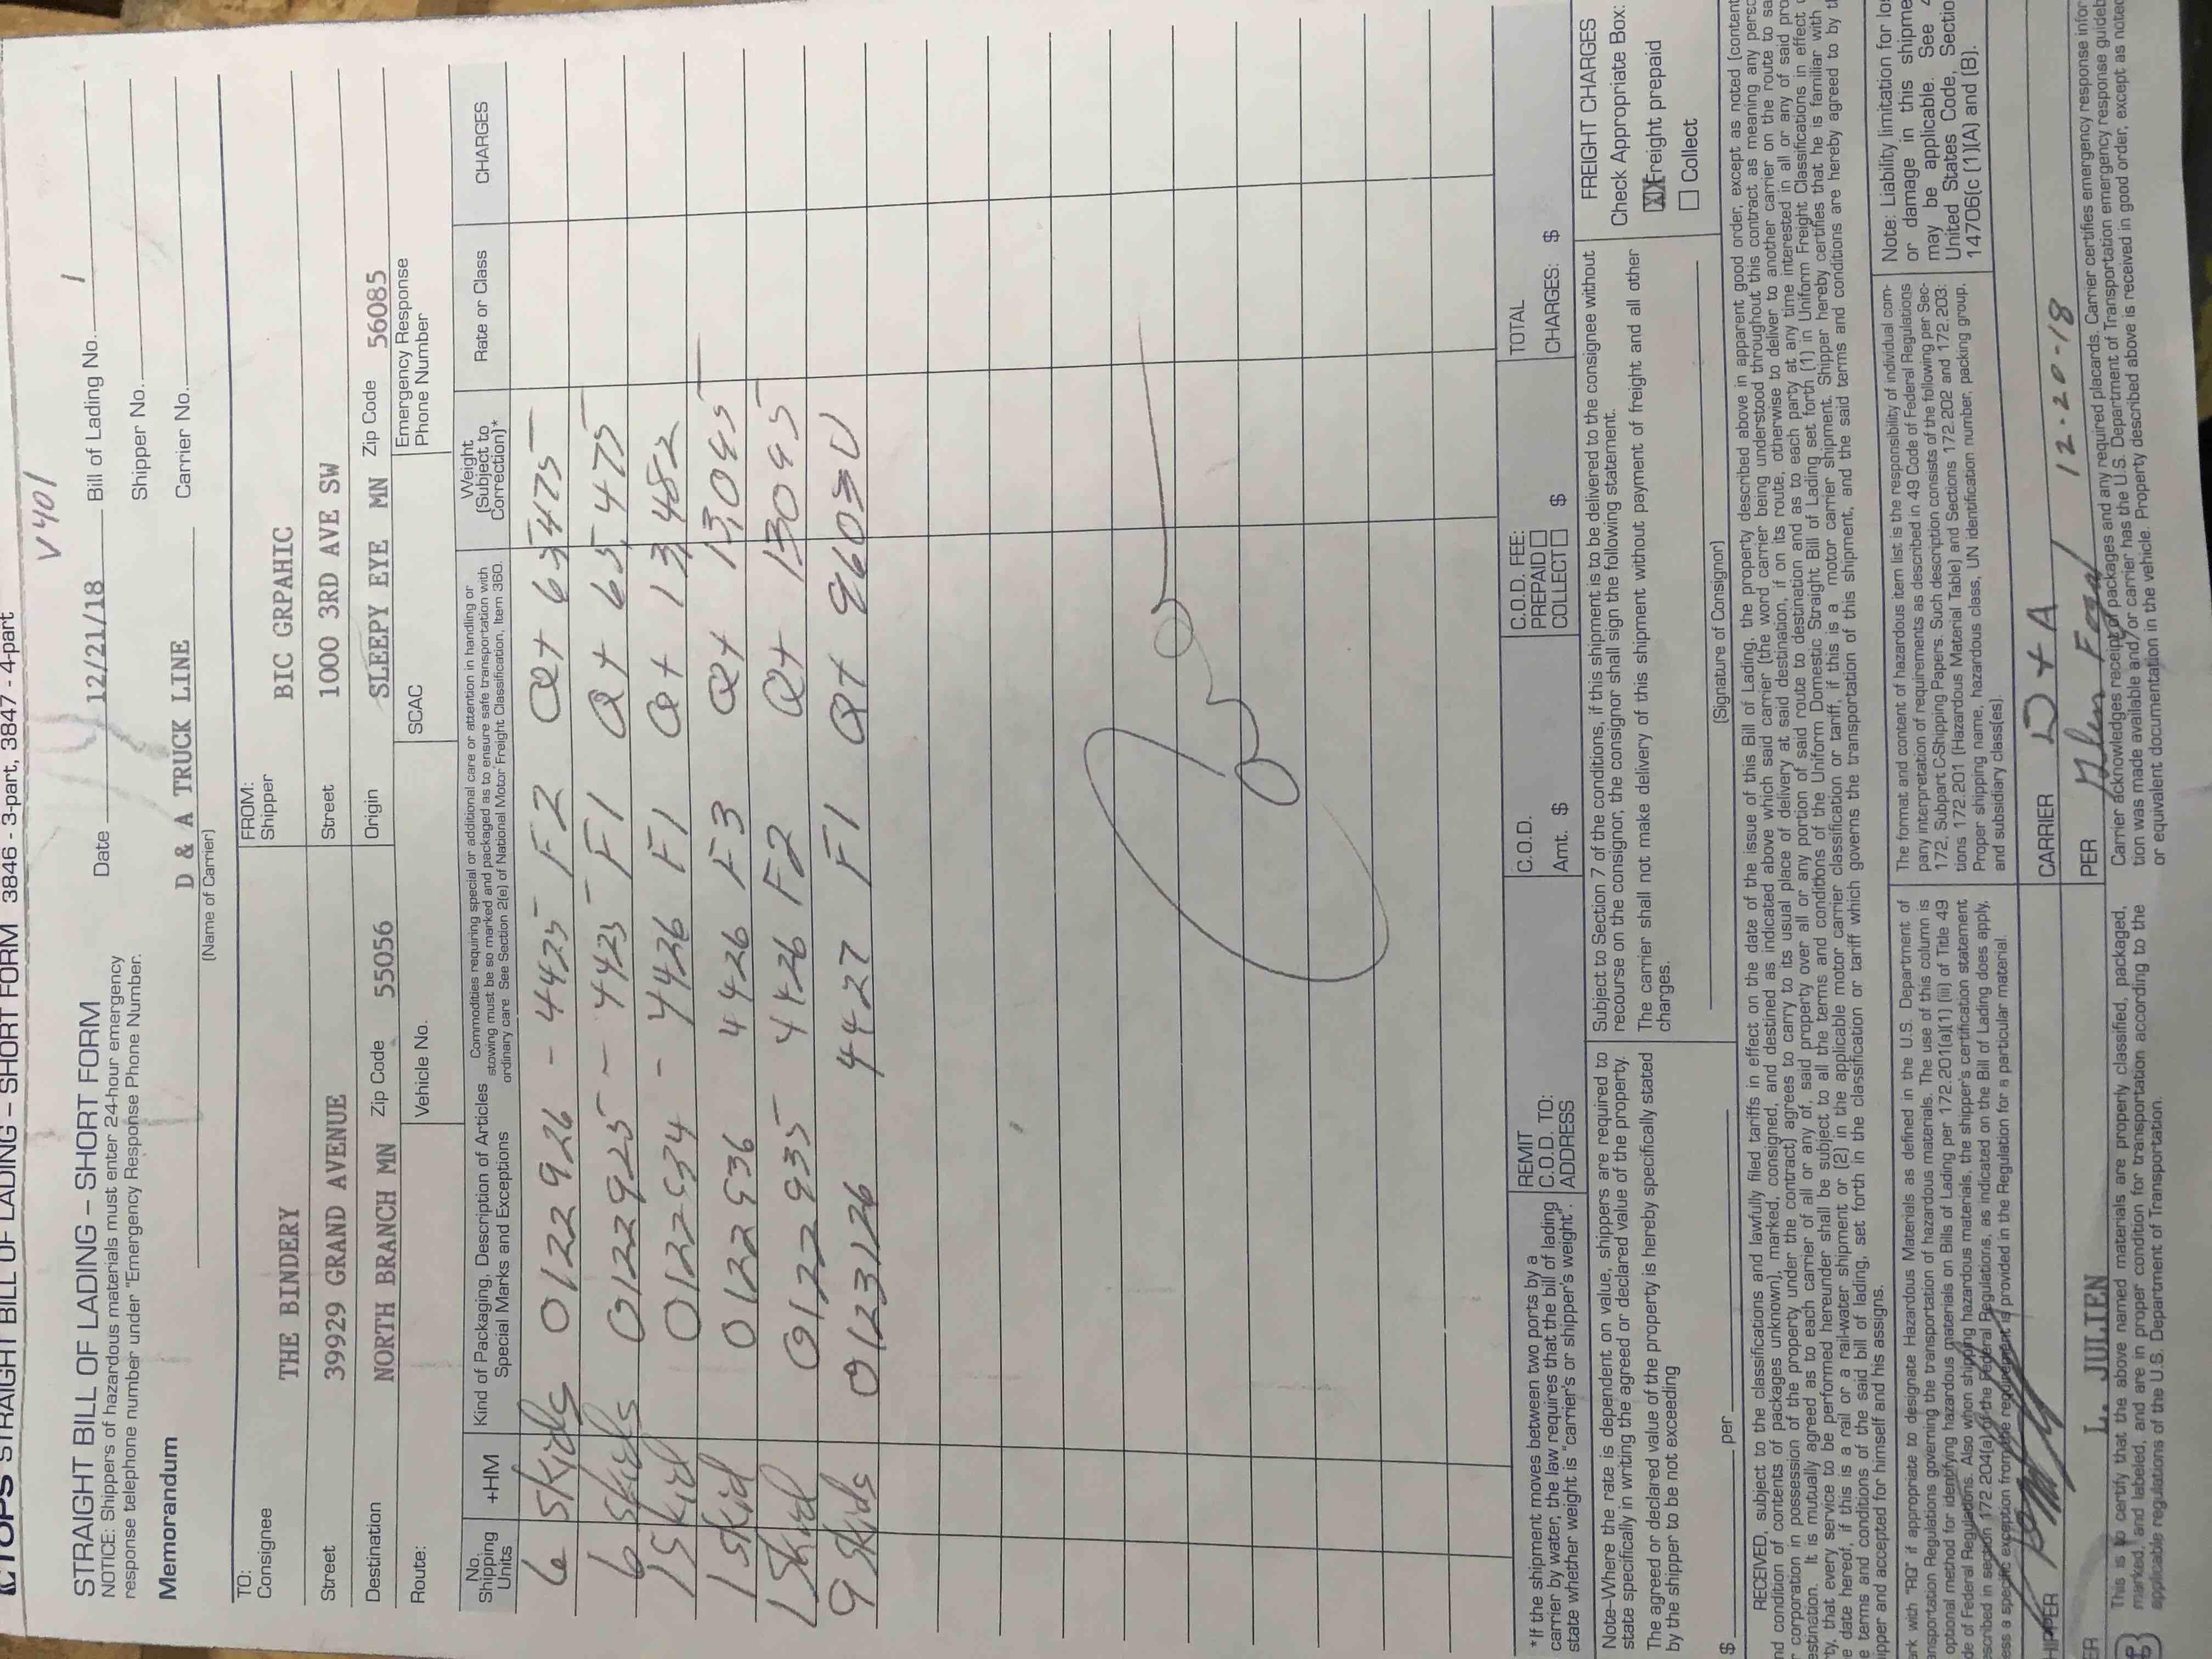 TOPS STRAIGHT BILL OF LADING – SHORT FORM 3846 - 3-part, 3847 - 4-part
V401
STRAIGHT BILL OF LADING – SHORT FORM
NOTICE: Shippers of hazardous materials must enter 24-hour emergency
response telephone number under "Emergency Response Phone Number.
Date 12/21/18
Bill of Lading No. 1
Shipper No.
Memorandum
D & A TRUCK LINE
Carrier No.
(Name of Carrier)
TO:
Consignee THE BINDERY
FROM:
Shipper BIC GRPAHIC
Street 39929 GRAND AVENUE
Street 1000 3RD AVE SW
Destination NORTH BRANCH MN Zip Code 55056
Origin SLEEPY EYE MN Zip Code 56085
Route:
Vehicle No.
SCAC
Emergency Response
Phone Number
No.
Shipping
Units
+HM
Kind of Packaging, Description of Articles
Special Marks and Exceptions
Commodities requiring special or additional care or attention in handling or
stowing must be so marked and packaged as to ensure safe transportation with
ordinary care. See Section 2(e) of National Motor Freight Classification, Item 360.
Weight
(Subject to
Correction)*
Rate or Class
CHARGES
6 skids 0122926 - 4425 F2 Qt 65475
6 skids 0122925 - 4425 F1 Qt 65,475
1 skid 0122934 - 4426 F1 Qt 13,482
1 skid 0122936 4426 F3 Qt 13,095
1 skid 0122935 4426 F2 Qt 13095
9 skids 0123126 4427 F1 Qt
*If the shipment moves between two ports by a
carrier by water, the law requires that the bill of lading
state whether weight is "carrier's or shipper's weight".
REMIT
C.O.D. TO:
ADDRESS
C.O.D.
Amt. $
C.O.D. FEE:
PREPAID
COLLECT $
TOTAL
CHARGES: $
Note–Where the rate is dependent on value, shippers are required to
state specifically in writing the agreed or declared value of the property.
The agreed or declared value of the property is hereby specifically stated
by the shipper to be not exceeding
$ per
Subject to Section 7 of the conditions, if this shipment is to be delivered to the consignee without
recourse on the consignor, the consignor shall sign the following statement.
The carrier shall not make delivery of this shipment without payment of freight and all other
charges.
(Signature of Consignor)
FREIGHT CHARGES
Check Appropriate Box:
X Freight prepaid
Collect
RECEIVED, subject to the classifications and lawfully filed tariffs in effect on the date of the issue of this Bill of Lading, the property described above in apparent good order, except as noted (content
and condition of contents of packages unknown), marked, consigned, and destined as indicated above which said carrier (the word carrier being understood throughout this contract as meaning any perso
corporation in possession of the property under the contract) agrees to carry to its usual place of delivery at said destination, if on its route, otherwise to deliver to another carrier on the route to sa
estination. It is mutually agreed as to each carrier of all or any of, said property over all or any portion of said route to destination and as to each party at any time interested in all or any of said pro
rty, that every service to be performed hereunder shall be subject to all the terms and conditions of the Uniform Domestic Straight Bill of Lading set forth (1) in Uniform Freight Classifications in effect
e date hereof, if this is a rail or a rail-water shipment or (2) in the applicable motor carrier classification or tariff, if this is a motor carrier shipment. Shipper hereby certifies that he is familiar with
e terms and conditions of the said bill of lading, set forth in the classification or tariff which governs the transportation of this shipment, and the said terms and conditions are hereby agreed to by t
ipper and accepted for himself and his assigns.
ark with "RQ" if appropriate to designate Hazardous Materials as defined in the U.S. Department of
ansportation Regulations governing the transportation of hazardous materials. The use of this column is
optional method for identifying hazardous materials on Bills of Lading per 172.201(a)(1) (iii) of Title 49
de of Federal Regulations. Also when shipping hazardous materials, the shipper's certification statement
escribed in section 172.204(a) of the Federal Regulations, as indicated on the Bill of Lading does apply,
ess a specific exception from the requirement is provided in the Regulation for a particular material.
The format and content of hazardous item list is the responsibility of individual com-
pany interpretation of requirements as described in 49 Code of Federal Regulations
172, Subpart C-Shipping Papers. Such description consists of the following per Sec-
tions 172.201 (Hazardous Material Table) and Sections 172.202 and 172.203:
Proper shipping name, hazardous class, UN identification number, packing group,
and subsidiary class(es).
Note: Liability limitation for los
or damage in this shipme
may be applicable. See 4
United States Code, Sectio
14706(c)(1)(A) and (B).
HIPPER
CARRIER D + A
ER L. JULIEN
PER 12-20-18
This is to certify that the above named materials are properly classified, packaged,
marked, and labeled, and are in proper condition for transportation according to the
applicable regulations of the U.S. Department of Transportation.
Carrier acknowledges receipt of packages and any required placards. Carrier certifies emergency response infor
tion was made available and/or carrier has the U.S. Department of Transportation emergency response guideb
or equivalent documentation in the vehicle. Property described above is received in good order, except as noted